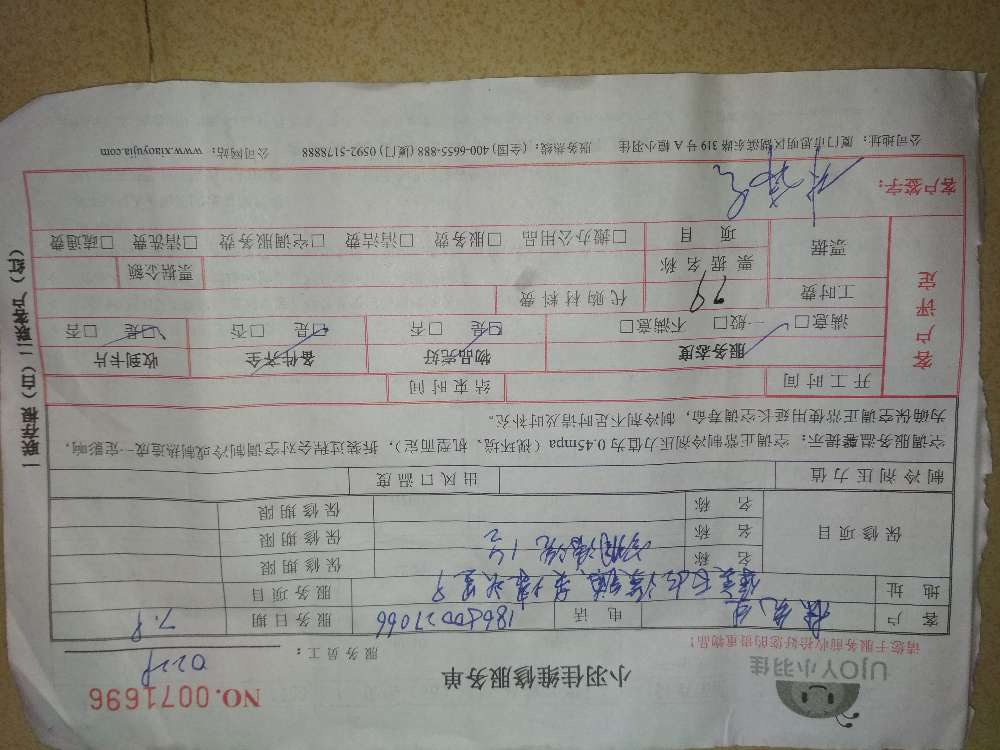 UJOY小羽佳
小羽佳维修服务单
NO.0071696
请您于服务前收拾好您的贵重物品!
服务员工: 0229
客 户 电 话 18680027066 服务日期 7.8
地 址 服务项目
保修项目 名 称 1台 保修期限
名 称 保修期限
名 称 保修期限
制冷剂压力值 出风口温度
空调服务温馨提示:空调正常制冷剂压力值为0.45mpa(视环境、机型而定),拆装过程会对空调制冷或制热造成一定影响,
为确保空调正常使用延长空调寿命,制冷剂不足时请及时补充。
客户评定
开工时间 结束时间
服务态度 物品完好 备件齐全 收到卡片
满意□ 一般□ 不满意□ □是 □否 □是 □否 □是 □否
工时费 79 代购材料费
票据 票据名称 票据金额
项 目 □搬办公用品 □服务费 □清洁费 □空调服务费 □清洗费 □疏通费
客户签字:
公司地址:厦门市思明区湖滨东路319号A幢小羽佳 服务热线:(全国)400-6655-888 (厦门) 0592-5178888 公司网站:www.xiaoyujia.com
一联存根(白)二联客户(红)